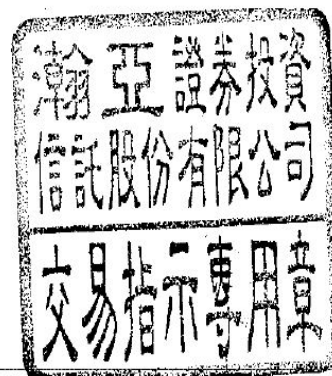 瀚亞證券投資
信託股份有限公司
交易指示專用章